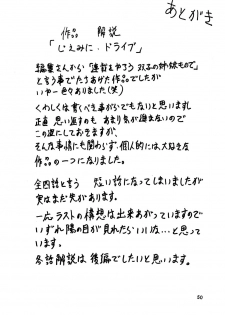 あとがき
作品 解説
「じぇみに・ドライブ」
編集さんから「連載をやろう 双子の姉妹もので」
と言う事でたちあげた作品でしたが
いやー色々ありました(笑)
くわしくは書くべき事がらでもないと思いますし
正直 思い返すのも あまり気が進まないので
この辺にしておきますが、
そんな事情にも関わらず、個人的には、大好きな
作品の一つになりました。
全四話と言う 短い話になってしまいましたが
実はまだ先があります。
一応ラストの構想は出来あがっていますので
いずれ陽の目が見れたらいいな…と思って
います。
各話解説は 後編でしたいと思います。
50